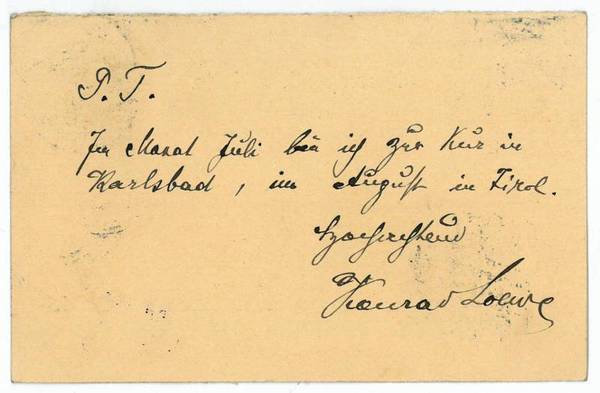 P. T.
Im Monat Juli bin ich zur Kur in
Karlsbad, im August in Tirol.
Hochachtend
Konrad Loewe